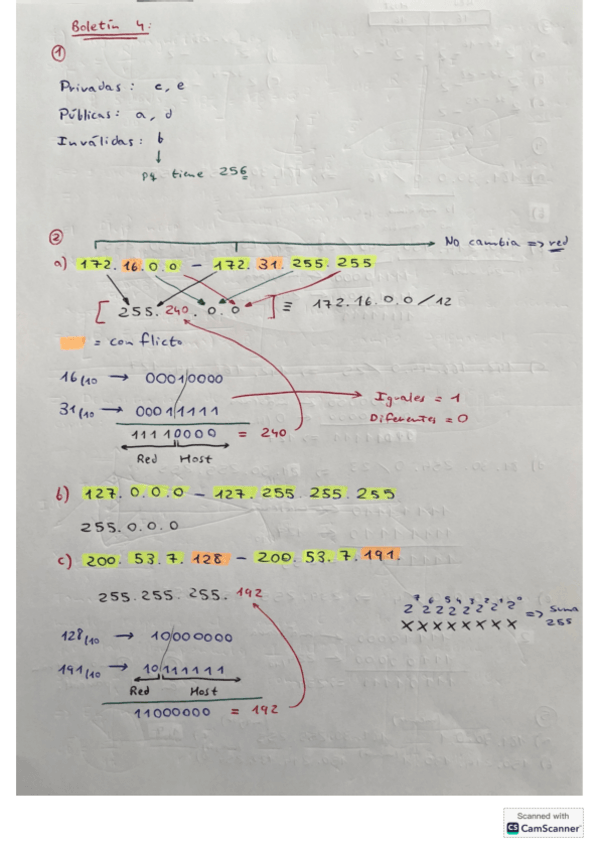 Boletín 4:
①
Privadas: c, e
Públicas: a, d
Inválidas: b
↓
pq tiene 256
②
No cambia => red
a) 172.16.0.0 - 172.31.255.255
[255.240.0.0] ≡ 172.16.0.0/12
= conflicto
16(10 → 00010000
31(10 → 00011111
Iguales = 1
Diferentes = 0
11110000 = 240
Red Host
b) 127.0.0.0 - 127.255.255.255
255.0.0.0
c) 200.53.7.128 - 200.53.7.191.
255.255.255.192
2⁷ 2⁶ 2⁵ 2⁴ 2³ 2² 2¹ 2⁰ => Suma 255
XXXXXXXX
128(10 → 10000000
191(10 → 10111111
Red Host
11000000 = 192
Scanned with
CS CamScanner